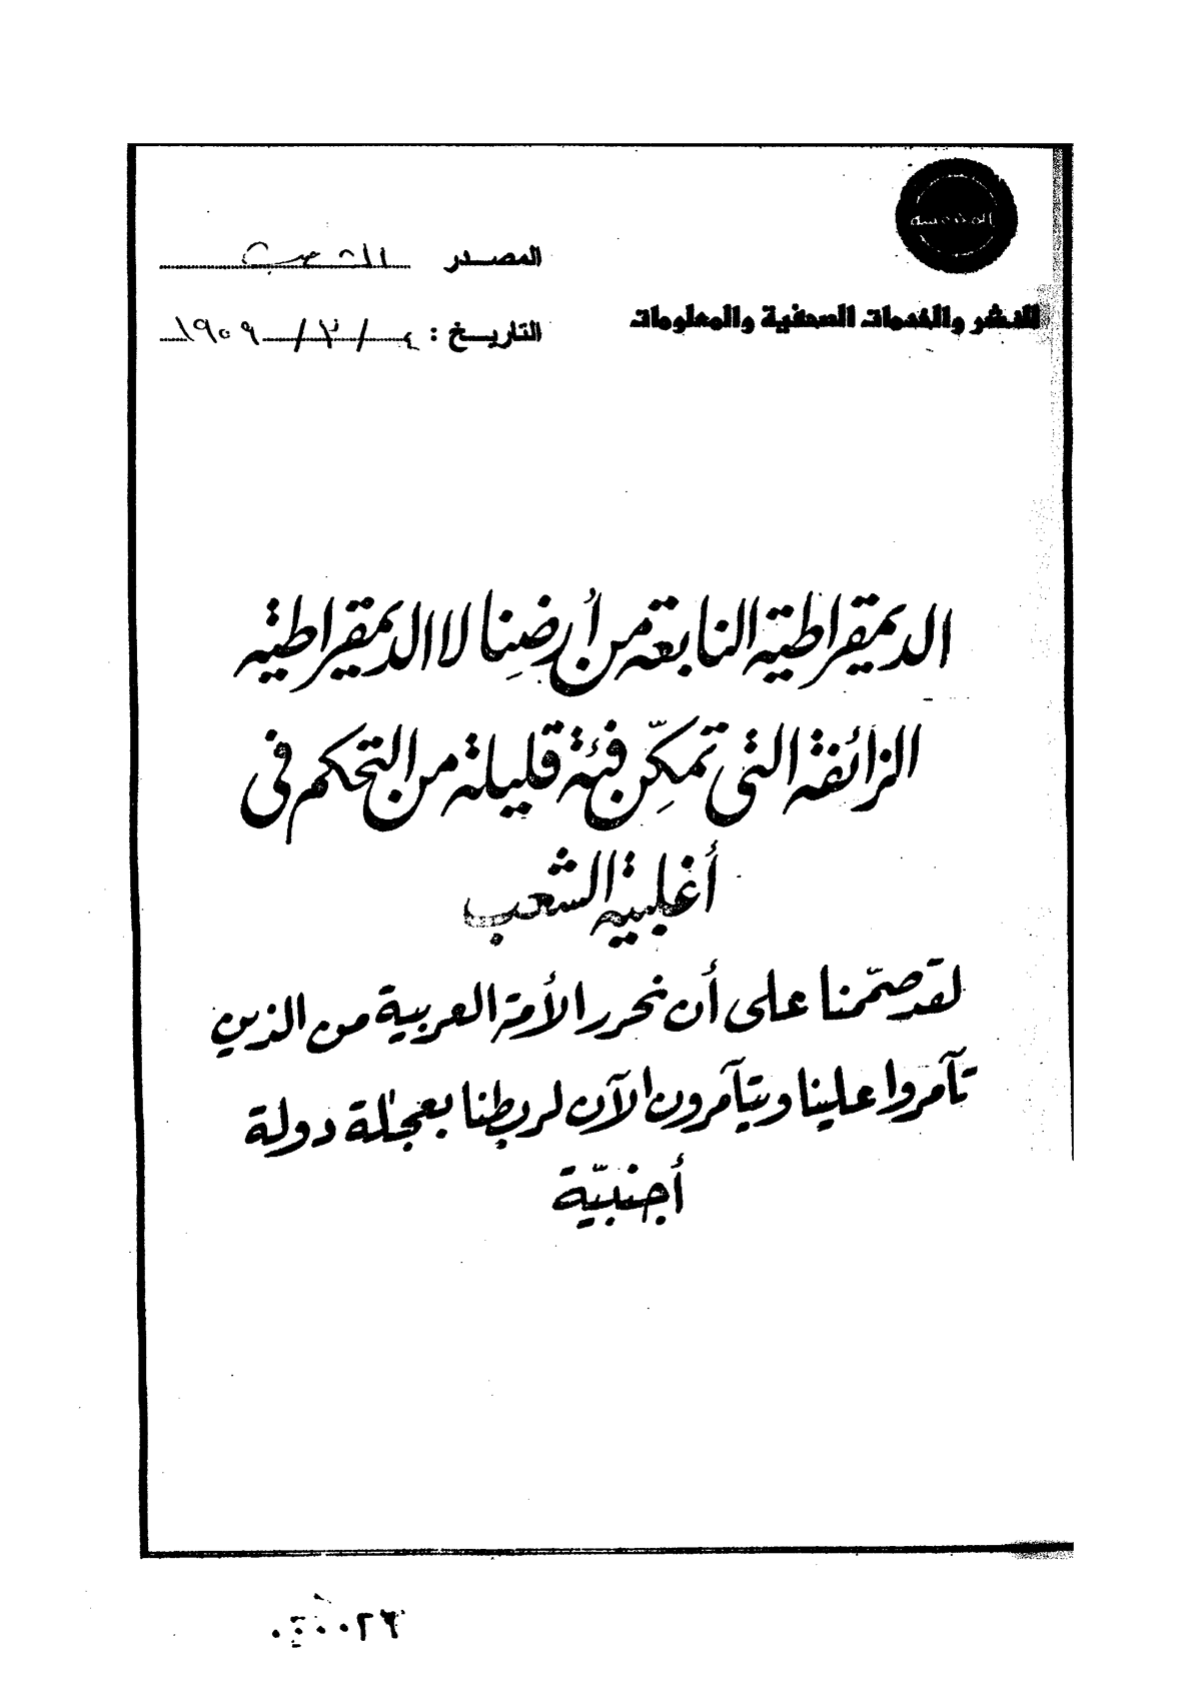 المصدر الشعب
للنشر والخدمات الصحفية والمعلومات
التاريخ : ٤ / ٣ / ١٩٥٩
الديمقراطية النابعة من أرضِنا لا الديمقراطية
الزائفة التى تمكّن فئة قليلة من التحكم فى
أغلبية الشعب
لقد صمّمنا على أن نحرر الأمة العربية من الذين
تآمروا علينا ويتآمرون الآن لربطنا بعجلة دولة
أجنبيّة